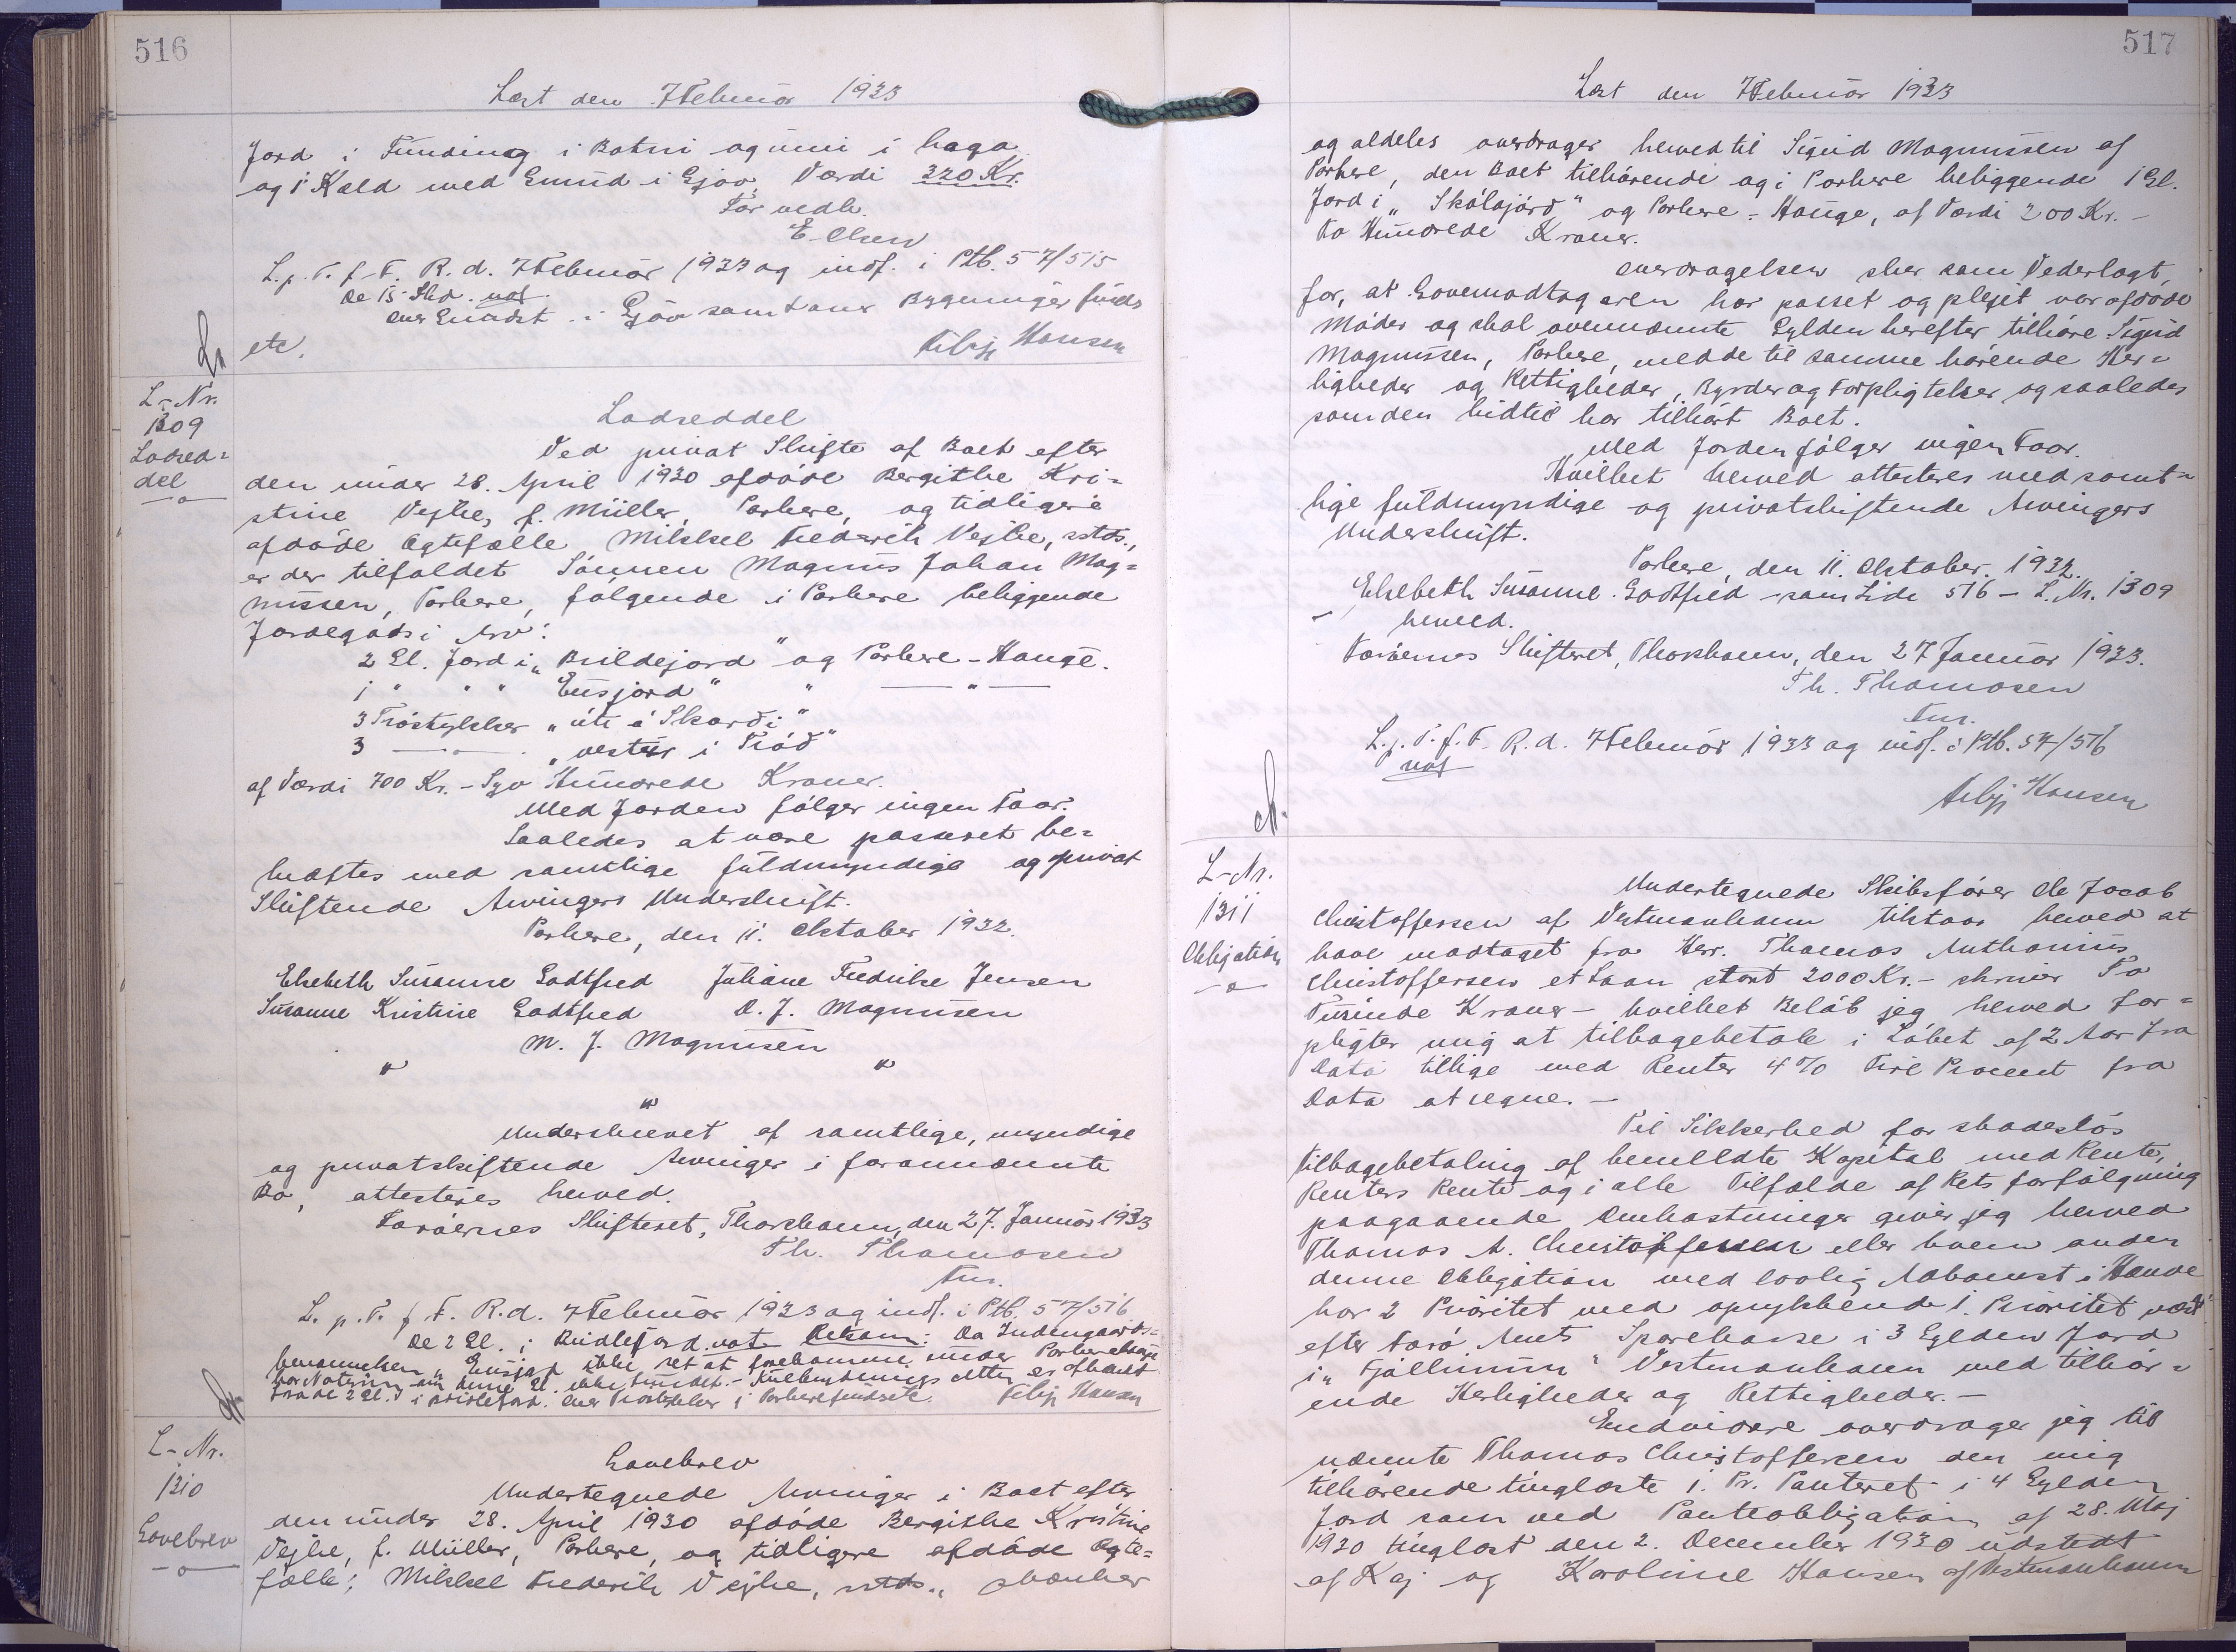 516
Læst den 7 Februar 1933
Jord i Funding i Botni og inni i haga
og i Kæld med Grund i Gjov, Værdi 320 Kr.
Før vedh.
E. Olsen
L. p. T. f. F. R. d. 7 Februar 1933 og indf. i Ptb. 57/515
De 15 Skd. not.
over Grundst. i Gjov samt over Bygninger findes
etc.
Hansen
L-Nr.
1309
Lodsed=
del
Lodseddel
Ved privat Skifte af Boet efter
den under 28. April 1930 afdøde Bergithe Kri=
stine Vejhe, f. Müller, Porkere, og tidligere
afdøde Ægtefælle Mikkel Frederik Vejhe, sstds.,
er der tilfaldet Sønnen Magnus Johan Mag=
nussen, Porkere, følgende i Porkere beliggende
Jordegods i Arv:
2 Gl. Jord i „Brildejord" og Porkere-Hauge.
1 " " " Ensjord" " — " —
3 Trøstykker „úti á Skarði"
3 — " — „vestur i Trøð"
af Værdi 700 Kr. - Syv Hundrede Kroner.
Med Jorden følger ingen Faar.
Saaledes at være passeret be=
kræftes med samtlige fuldmyndige og privat
Skiftende Arvingers Underskrift.
Porkere, den 11. Oktober 1932.
Elsebeth Susanne Godtfred Juliane Fredrikke Jensen
Susanne Kristine Godtfred D. J. Magnussen
M. J. Magnussen
" "
"
Underskrevet af samtlige, myndige
og privatskiftende Arvinger i forannævnte
Bo, attesteres herved.
Færøernes Skifteret, Thorshavn, den 27. Januar 1933
Th. Thomosen
fm.
L. p. T. f. F. R. d. 7 Februar 1933 og indf. i Ptb. 57/516
De 2 Gl. i Brildejord not. Bekom: Da Indengaards=
benævnelsen „Ensjord ikke ses at forekomme under Porkere
har Notering om denne Gl. ikke fundet.
fra de 2 Gl. i Brildejord. over Trøstykker i Porkere findes etc. Hansen
L-Nr.
1310
Gavebrev
Gavebrev
Undertegnede Arvinger i Boet efter
den under 28. April 1930 afdøde Bergithe Kristine
Vejhe, f. Müller, Porkere, og tidligere afdøde Ægte=
fælle, Mikkel Frederik Vejhe, sstds., skænker
517
Læst den 7 Februar 1933
og aldeles overdrager herved til Sigrid Magnussen af
Porkere, den Boet tilhørende og i Porkere beliggende 1 Gl.
Jord i „Skálajørð" og Porkere-Hauge, af Værdi 200 Kr. -
To Hundrede Kroner.
Overdragelsen sker som Vederlagt,
for, at Gavemodtageren har passet og plejet vor afdøde
Moder og skal ovennævnte Gylden herefter tilhøre Sigrid
Magnussen, Porkere, med de til samme hørende Her=
ligheder og Rettigheder, Byrder og Forpligtelser og saaledes
som den hidtil har tilhørt Boet.
Med Jorden følger ingen Faar.
Hvilket herved attesteres med samt=
lige fuldmyndige og privatskiftende Arvingers
Underskrift.
Porkere, den 11. Oktober. 1932.
Elsebeth Susanne Godtfred - som Side 516 - L.Nr. 1309
- herved.
Færøernes Skifteret, Thorshavn, den 27 Januar 1933.
Th. Thomosen
fm.
L. p. T. f. F. R. d. 7 Februar 1933 og indf. i Ptb. 57/516
not
Hansen
L-Nr.
1311
Obligation
Undertegnede Skibsfører Ole Jacob
Christoffersen af Vestmanhavn tilstaar herved at
have modtaget fra Herr. Thomas Anthonius
Christoffersen et Laan stort 2000 Kr. - skriver To
Tusinde Kroner - hvilket Beløb jeg herved for=
pligter mig at tilbagebetale i Løbet af 2 Aar fra
Dato tillige med Renter 4% Fire Procent fra
Dato at regne. -
Til Sikkerhed for skadesløs
tilbagebetaling af bemeldte Kapital med Rente,
Renters Rente og i alle Tilfælde af Rets forfølgning
paagaaende Omkostninger giver jeg herved
Thomas A. Christoffersen eller hvem anden
denne Obligation med lovlig Adkomst i Hænde
har 2 Prioritet med oprykkende 1. Prioritet næst
efter Færø Amts Sparekasse i 3 Gylden Jord
i „Fjøllinum" Vestmanhavn med tilhør=
ende Herligheder og Rettigheder. -
Endvidere overdrager jeg til
nævnte Thomas Christoffersen den mig
tilhørende tinglæste 1. Pr. Panteret i 4 Gylden
Jord som ved Panteobligation af 28. Maj
1930 tinglæst den 2. December 1930 udstedt
af Kaj og Karoline Hansen af Vestmanhavn